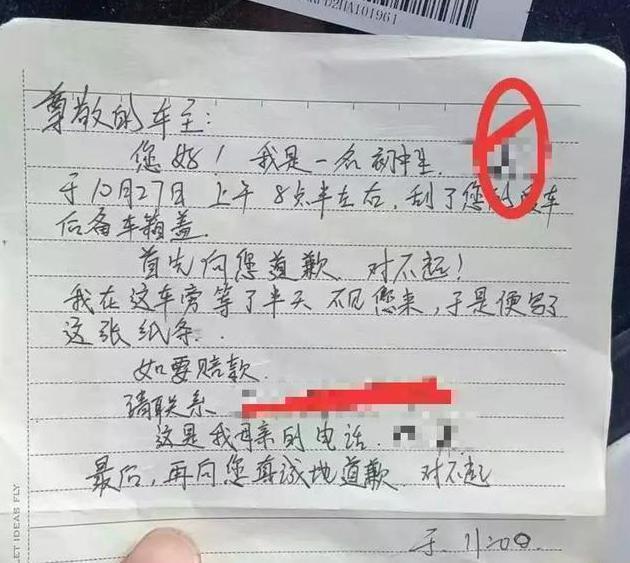 D2HA101961
尊敬的车主：
您好！我是一名初中生，
于10月27日上午8点半左右，刮了您的爱车
后备车箱盖.
首先向您道歉 对不起！
我在这车旁等了半天 不见您来，于是便写了
这张纸条.
如要赔款.
请联系
这是我母亲的电话.
最后，再向您真诚地道歉 对不起
于.11:00.
LET IDEAS FLY